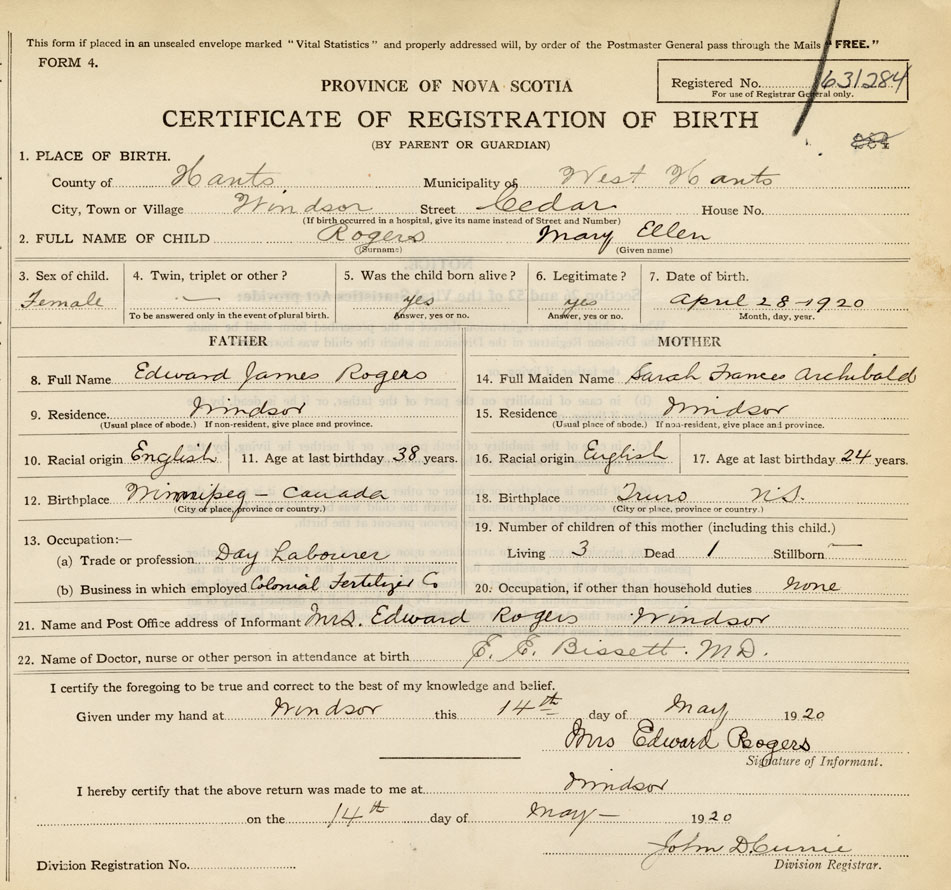 This form if placed in an unsealed envelope marked "Vital Statistics" and properly addressed will, by order of the Postmaster General pass through the Mails "FREE."
FORM 4.
Registered No. 631284
For use of Registrar General only.
PROVINCE OF NOVA SCOTIA
CERTIFICATE OF REGISTRATION OF BIRTH
(BY PARENT OR GUARDIAN)
1. PLACE OF BIRTH.
County of Hants Municipality of West Hants
City, Town or Village Windsor Street Cedar House No.
(If birth occurred in a hospital, give its name instead of Street and Number)
2. FULL NAME OF CHILD Rogers Mary Ellen
(Surname) (Given name)
3. Sex of child. 4. Twin, triplet or other? 5. Was the child born alive? 6. Legitimate? 7. Date of birth.
Female — yes yes April 28-1920
To be answered only in the event of plural birth. Answer, yes or no. Answer, yes or no. Month, day, year.
FATHER MOTHER
8. Full Name Edward James Rogers 14. Full Maiden Name Sarah Frances Archibald
9. Residence Windsor 15. Residence Windsor
(Usual place of abode.) If non-resident, give place and province. (Usual place of abode.) If non-resident, give place and province.
10. Racial origin English 11. Age at last birthday 38 years. 16. Racial origin English 17. Age at last birthday 24 years.
12. Birthplace Winnipeg - Canada 18. Birthplace Truro N.S.
(City or place, province or country.) (City or place, province or country.)
19. Number of children of this mother (including this child.)
13. Occupation:—
(a) Trade or profession Day Labourer Living 3 Dead 1 Stillborn —
(b) Business in which employed Colonial Fertilizer Co 20. Occupation, if other than household duties none
21. Name and Post Office address of Informant Mrs. Edward Rogers Windsor
22. Name of Doctor, nurse or other person in attendance at birth E. E. Bissett. M.D.
I certify the foregoing to be true and correct to the best of my knowledge and belief.
Given under my hand at Windsor this 14th day of May 1920
Mrs Edward Rogers
Signature of Informant.
I hereby certify that the above return was made to me at Windsor
on the 14th day of May — 1920
John D. Currie
Division Registration No. Division Registrar.